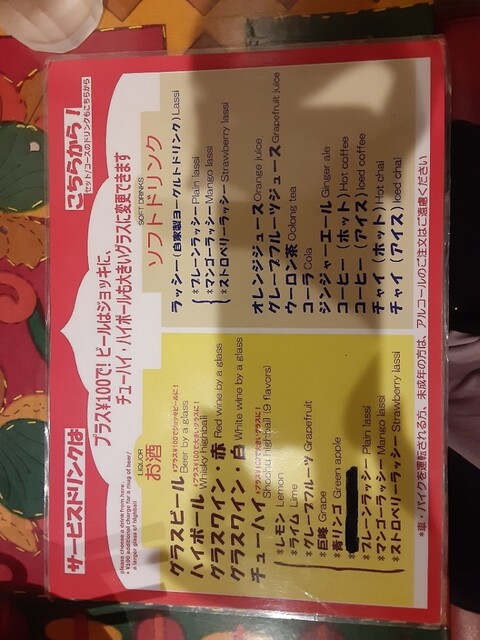 サービスドリンクは
こちらから！
セット/コースのドリンクもこちらから
please choose a drink from here.
* ¥100 additional charge for a mug of beer/
a larger glass of highball
プラス¥100で! ビールはジョッキに、
チューハイ・ハイボールも大きいグラスに変更できます
LIQUOR
お酒
グラスビール Beer by a glass
*プラス¥100でジョッキビールに！
ハイボール Whisky highball
*プラス¥100で大きいグラスに！
グラスワイン・赤 Red wine by a glass
グラスワイン・白 White wine by a glass
チューハイ Shochu highball (9 flavors)
*プラス¥100で大きいグラスに！
*レモン Lemon
*ライム Lime
*グレープフルーツ Grapefruit
*巨峰 Grape
*青リンゴ Green apple
*プレーンラッシー Plain lassi
*マンゴーラッシー Mango lassi
*ストロベリーラッシー Strawberry lassi
SOFT DRINKS
ソフトドリンク
ラッシー (自家製ヨーグルトドリンク) Lassi
*プレーンラッシー Plain lassi
*マンゴーラッシー Mango lassi
*ストロベリーラッシー Strawberry lassi
オレンジジュース Orange juice
グレープフルーツジュース Grapefruit juice
ウーロン茶 Oolong tea
コーラ Cola
ジンジャーエール Ginger ale
コーヒー (ホット) Hot coffee
コーヒー (アイス) Iced coffee
チャイ (ホット) Hot chai
チャイ (アイス) Iced chai
*車・バイクを運転される方、未成年の方は、アルコールのご注文はご遠慮ください